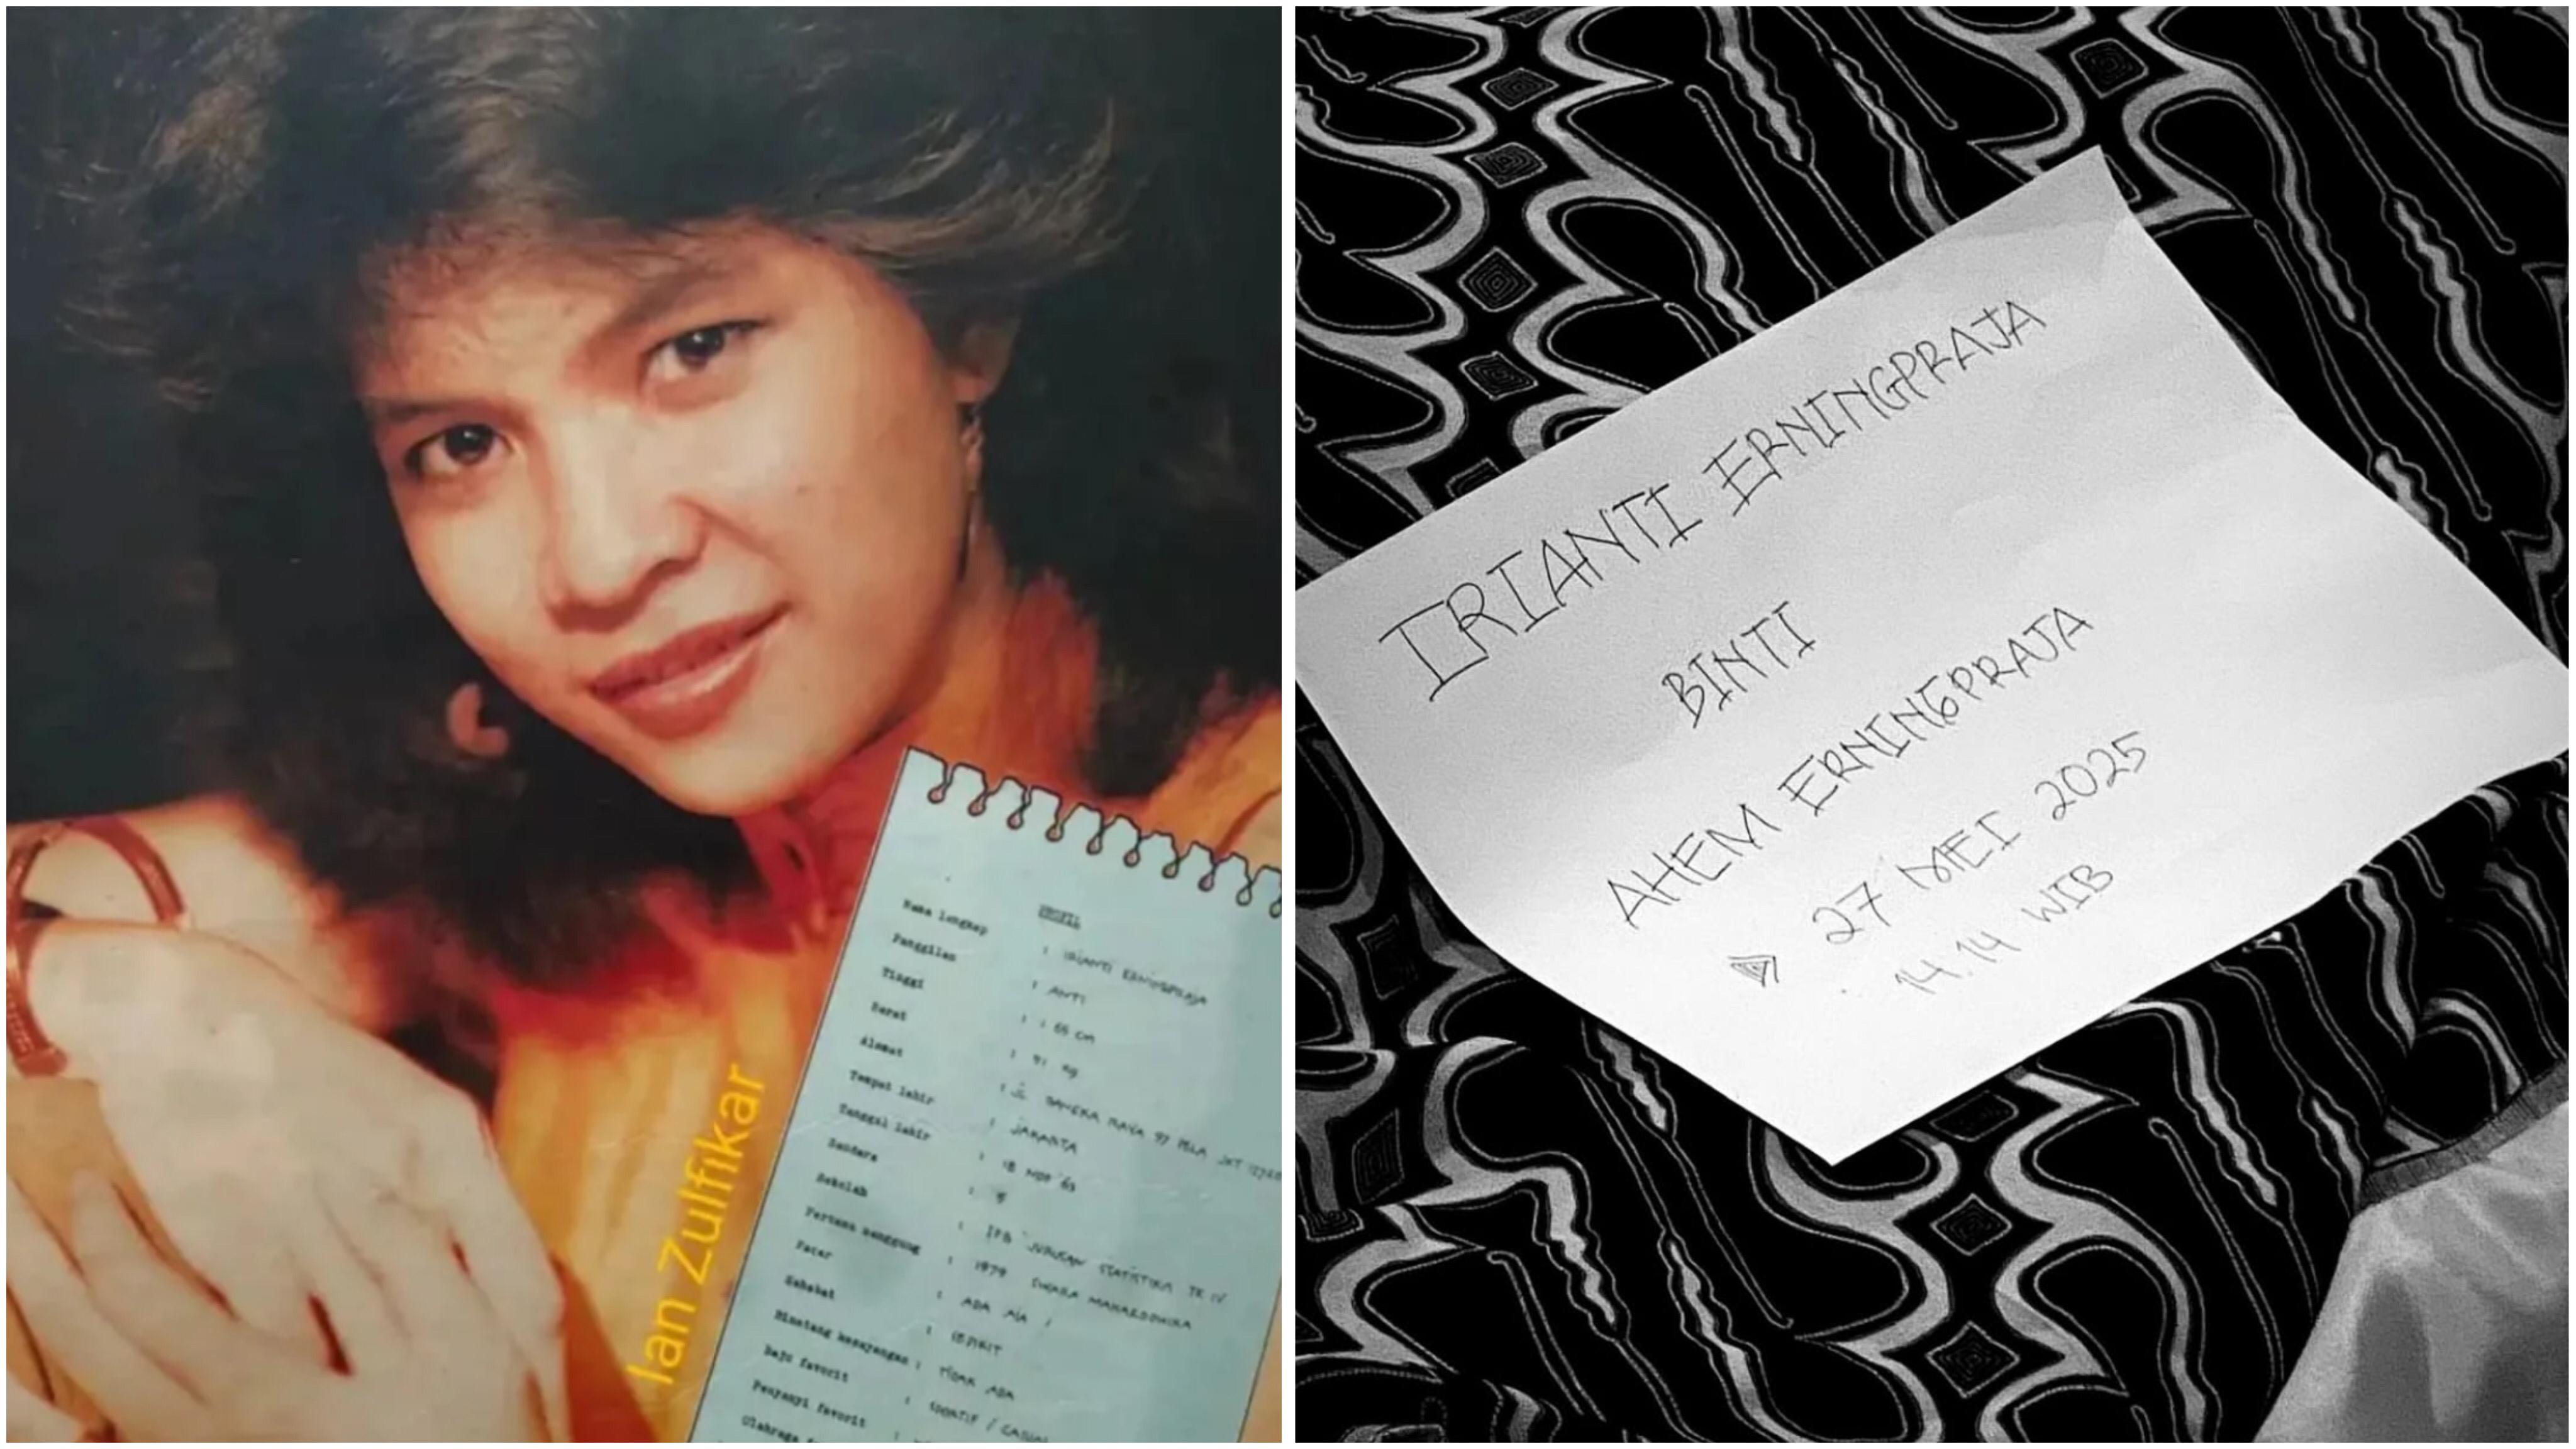 PROFIL
Nama lengkap : IRIANTI ERNINGPRAJA
Panggilan : ANTI
Tinggi : 165 cm
Berat : 51 kg
Alamat : JL. BANGKA RAYA 97 PELA JKT
Tempat lahir : JAKARTA
Tanggal lahir : 18 '63
Saudara : 5
Sekolah : IPB JURUSAN STATISTIKA TK IV
Pertama manggung : 1979 SWARA MAHARDDHIKA
Pacar : ADA AJA !
Sahabat :
Binatang kesayangan : TIDAK ADA
Baju favorit : SPORTIF / CASUAL
Penyanyi favorit :
Olahraga
Ian Zulfikar
IRIANTI ERNINGPRAJA
BINTI
AHEM ERNINGPRAJA
27 MEI 2025
14.14 WIB